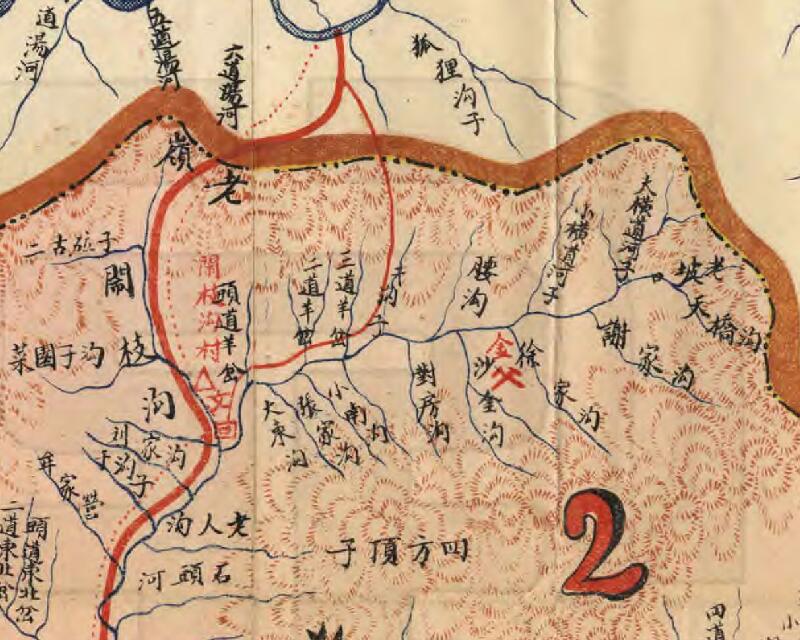 道湯河
五道湯河
六道陽河
狐狸沟子
老嶺
大橫道河子
小橫道河子
老坡
天橋沟
腰沟
二道羊岔
三道羊岔
頭道羊岔
閙枝沟村
閙枝沟
菜園子沟
文
金
徐家沟
謝家沟
沙金沟
對房沟
小南沟
張家沟
大東沟
刘家沟
于沟子
老人沟
四方頂子
石頭河
頭道東北岔
二道東北
2